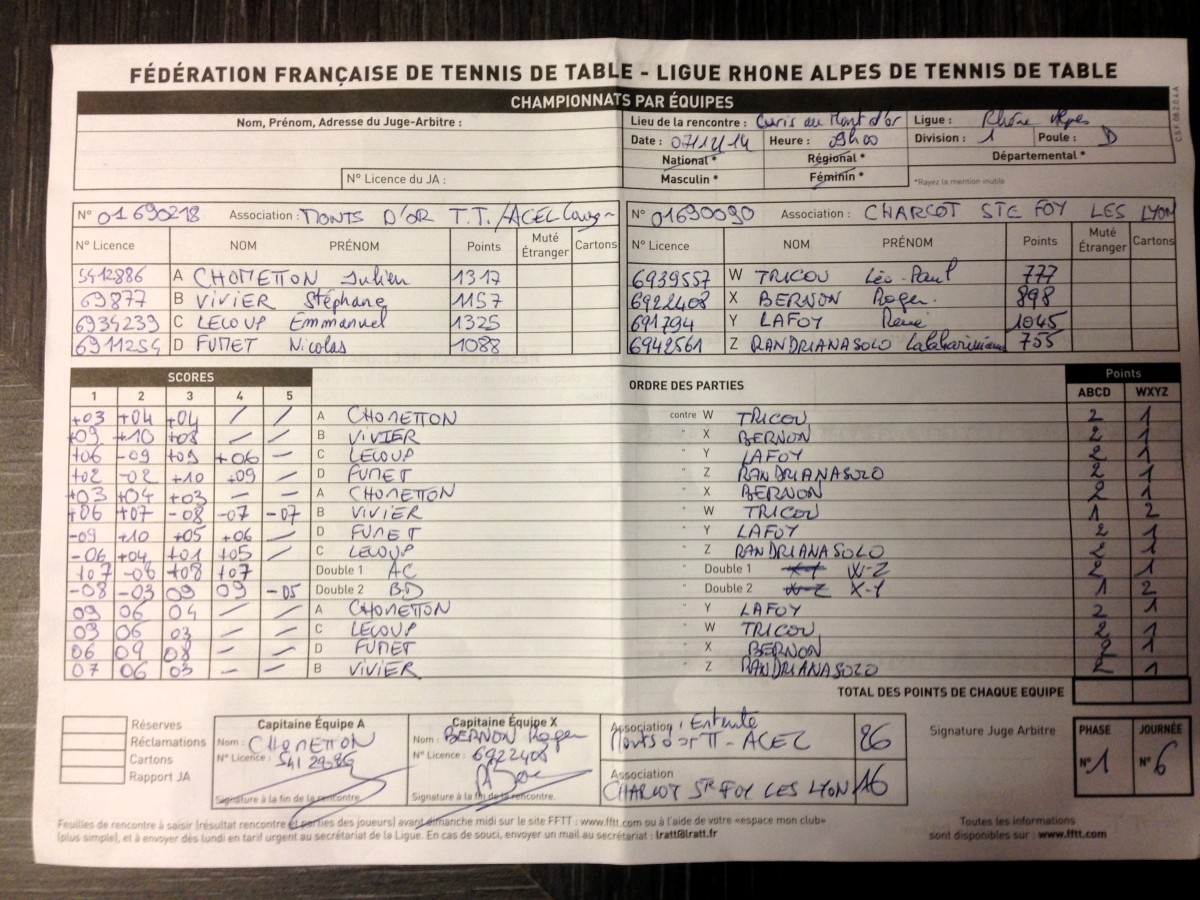 FÉDÉRATION FRANÇAISE DE TENNIS DE TABLE - LIGUE RHONE ALPES DE TENNIS DE TABLE
CHAMPIONNATS PAR ÉQUIPES
Nom, Prénom, Adresse du Juge-Arbitre :
Lieu de la rencontre : Curis au Mont d'or Ligue : Rhône Alpes
Date : 07/12/14 Heure : 09h00 Division : 1 Poule : D
National * Régional * Départemental *
N° Licence du JA : Masculin * Féminin * *Rayez la mention inutile
C.S.F. 08.2.0.4.A
N° 01690218 Association : MONTS D'OR T.T./ACEL N° 01690090 Association : CHARCOT STE FOY LES LYON
N° Licence NOM PRÉNOM Points Muté Étranger Cartons N° Licence NOM PRÉNOM Points Muté Étranger Cartons
5412986 A CHOMETTON Julien 1317 6939557 W TRICOU Léo-Paul 777
69877 B VIVIER Stéphane 1157 6922408 X BERNON Roger. 898
6934239 C LELOUP Emmanuel 1325 691794 Y LAFOY René 1045
6911254 D FUMET Nicolas 1088 6942561 Z RANDRIANASOLO 755
SCORES ORDRE DES PARTIES Points
1 2 3 4 5 ABCD WXYZ
+03 +04 +04 / / A CHOMETTON contre W TRICOU 2 1
+09 +10 +08 - - B VIVIER " X BERNON 2 1
+06 -09 +09 +06 - C LELOUP " Y LAFOY 2 1
+02 -02 +10 +09 - D FUMET " Z RANDRIANASOLO 2 1
+03 +04 +03 - - A CHOMETTON " X BERNON 2 1
+06 +07 -08 -07 -07 B VIVIER " W TRICOU 1 2
-09 +10 +05 +06 - D FUMET " Y LAFOY 2 1
-06 +04 +01 +05 / C LELOUP " Z RANDRIANASOLO 2 1
+07 -06 +08 +07 Double 1 AC " Double 1 X-Y W-Z 2 1
-08 -03 09 09 -05 Double 2 BD " Double 2 W-Z X-Y 1 2
09 06 04 - - A CHOMETTON " Y LAFOY 2 1
03 06 03 - - C LELOUP " W TRICOU 2 1
06 09 08 - - D FUMET " X BERNON 2 1
07 06 03 - - B VIVIER " Z RANDRIANASOLO 2 1
TOTAL DES POINTS DE CHAQUE EQUIPE
Réserves
Réclamations
Cartons
Rapport JA
Capitaine Équipe A
Nom : CHOMETTON
N° Licence : 541 29-86
Signature à la fin de la rencontre.
Capitaine Équipe X
Nom : BERNON Roger
N° Licence : 6922408
Signature à la fin de la rencontre.
Association : Entente
Monts d'or TT - ACEL 26
Association
CHARCOT STE FOY LES LYON 16
Signature Juge Arbitre
PHASE JOURNÉE
N° 1 N° 6
Feuilles de rencontre à saisir (résultat rencontre et parties des joueurs) avant dimanche midi sur le site FFTT : www.fftt.com ou à l'aide de votre «espace mon club»
(plus simple), et à envoyer dès lundi en tarif urgent au secrétariat de la Ligue. En cas de souci, envoyer un mail au secrétariat : lratt@lratt.fr
Toutes les informations
sont disponibles sur : www.fftt.com